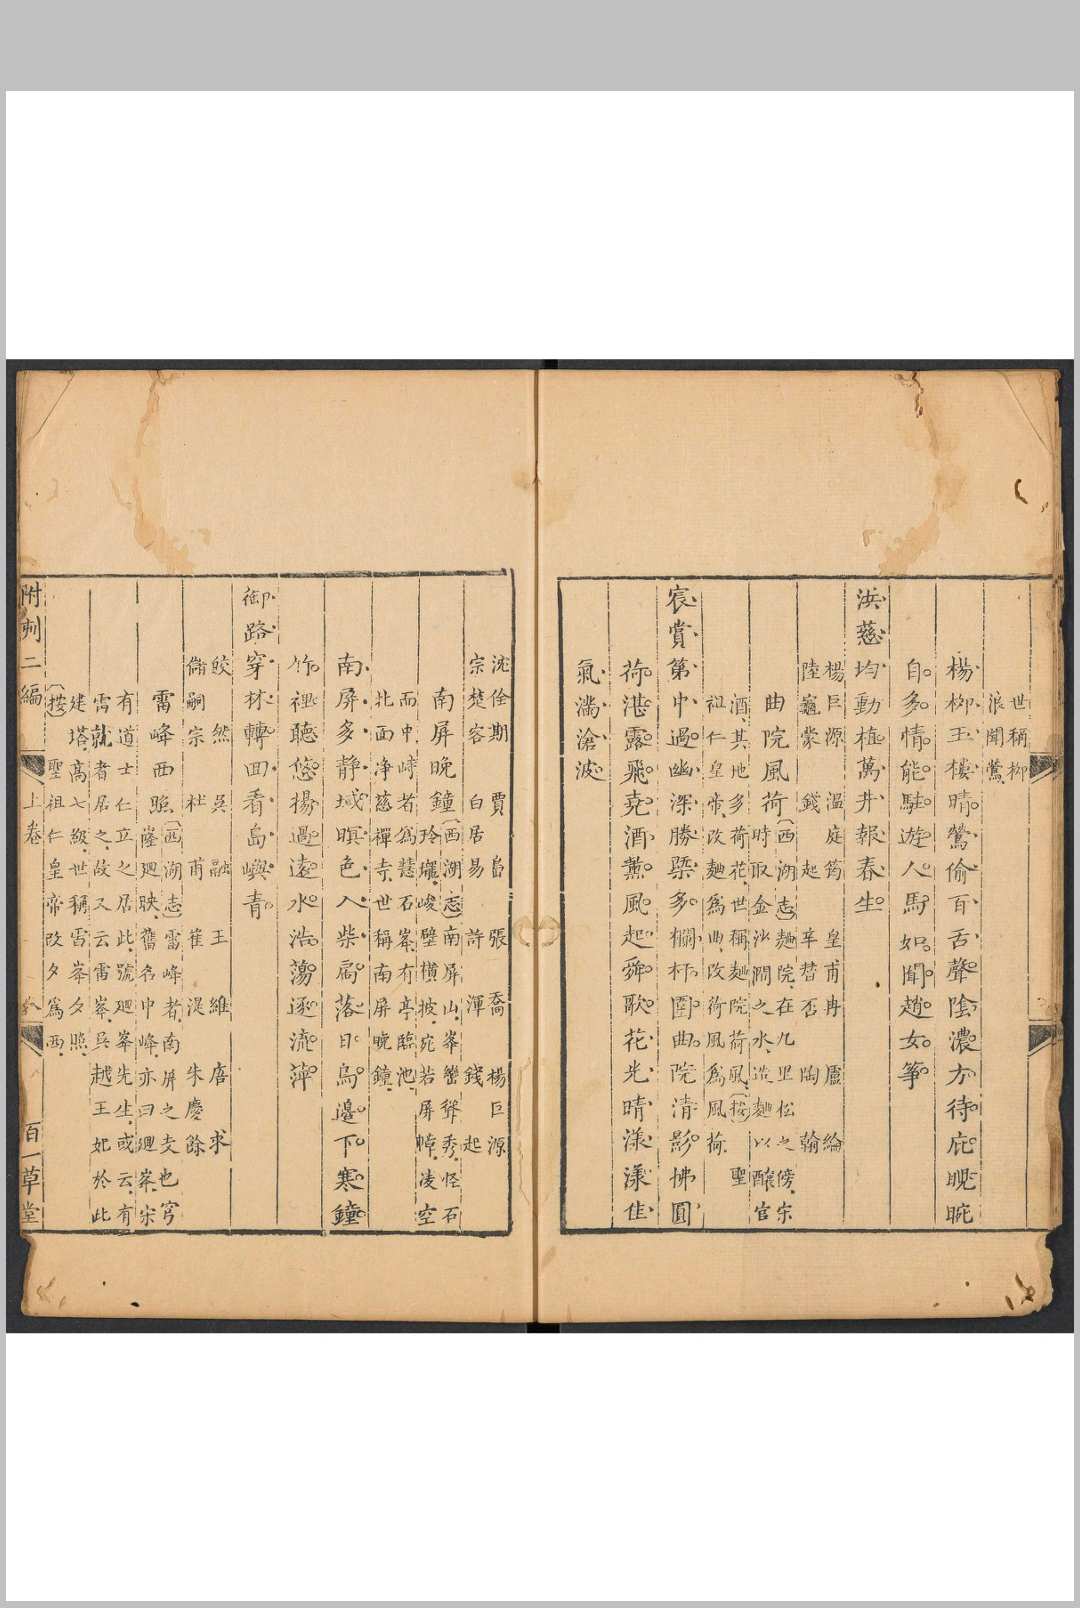 世稱柳
浪聞鶯
楊柳玉樓晴鶯偷百舌聲陰濃方待庇睍睆
自多情能駐遊人馬如聞趙女箏
洪慈均動植萬井報春生
楊巨源 溫庭筠 皇甫冉 盧綸
陸龜蒙 錢起 辛替否 陶翰
曲院風荷
〔西湖志〕麯院在九里松之傍宋
時取金沙澗之水造麯以釀官
酒其地多荷花世稱麯院荷風〔按〕聖
祖仁皇帝改麯為曲改荷風為風荷
宸賞第中過幽深勝槩多欄杯圍曲院清影拂圓
荷湛露飛堯酒薰風起舜歌花光晴漾漾佳
氣滿滄波
沈佺期 賈島 張喬 楊巨源
宗楚客 白居易 許渾 錢起
南屏晚鐘
〔西湖志〕南屏山峯巒聳秀怪石
玲瓏峻壁橫披宛若屏幛凌空
而中峙者為慧石峯有亭臨池
北面净慈禪寺世稱南屏晚鐘
南屏多靜域暝色入柴扃落日烏邊下寒鐘
竹裡聽悠揚過遠水浩蕩逐流萍
御路穿林轉回看島嶼青
皎然 吳融 王維 唐求
儲嗣宗 杜甫 崔湜 朱慶餘
雷峰西照
〔西湖志〕雷峰者南屏之支也穹
窿廻映舊名中峰亦曰廻峯宋
有道士仁立之居此號廻峯先生或云有
雷就者居之故又云雷峯吳越王妃於此
建塔高七級世稱雷峯夕照
〔按〕聖祖仁皇帝改夕為西
附刺二編 上卷 百一草堂